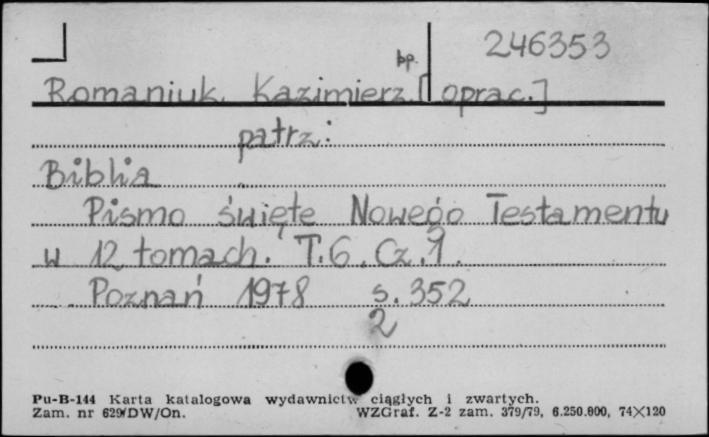 246353
bp.
Romaniuk Kazimierz [oprac.]
patrz:
Biblia
Pismo święte Nowego Testamentu
w 12 tomach. T.6. Cz.1.
Poznań 1978 s. 352
2
Pu-B-144 Karta katalogowa wydawnictw ciągłych i zwartych.
Zam. nr 629/DW/On. WZGraf. Z-2 zam. 379/79, 6.250.000, 74×120